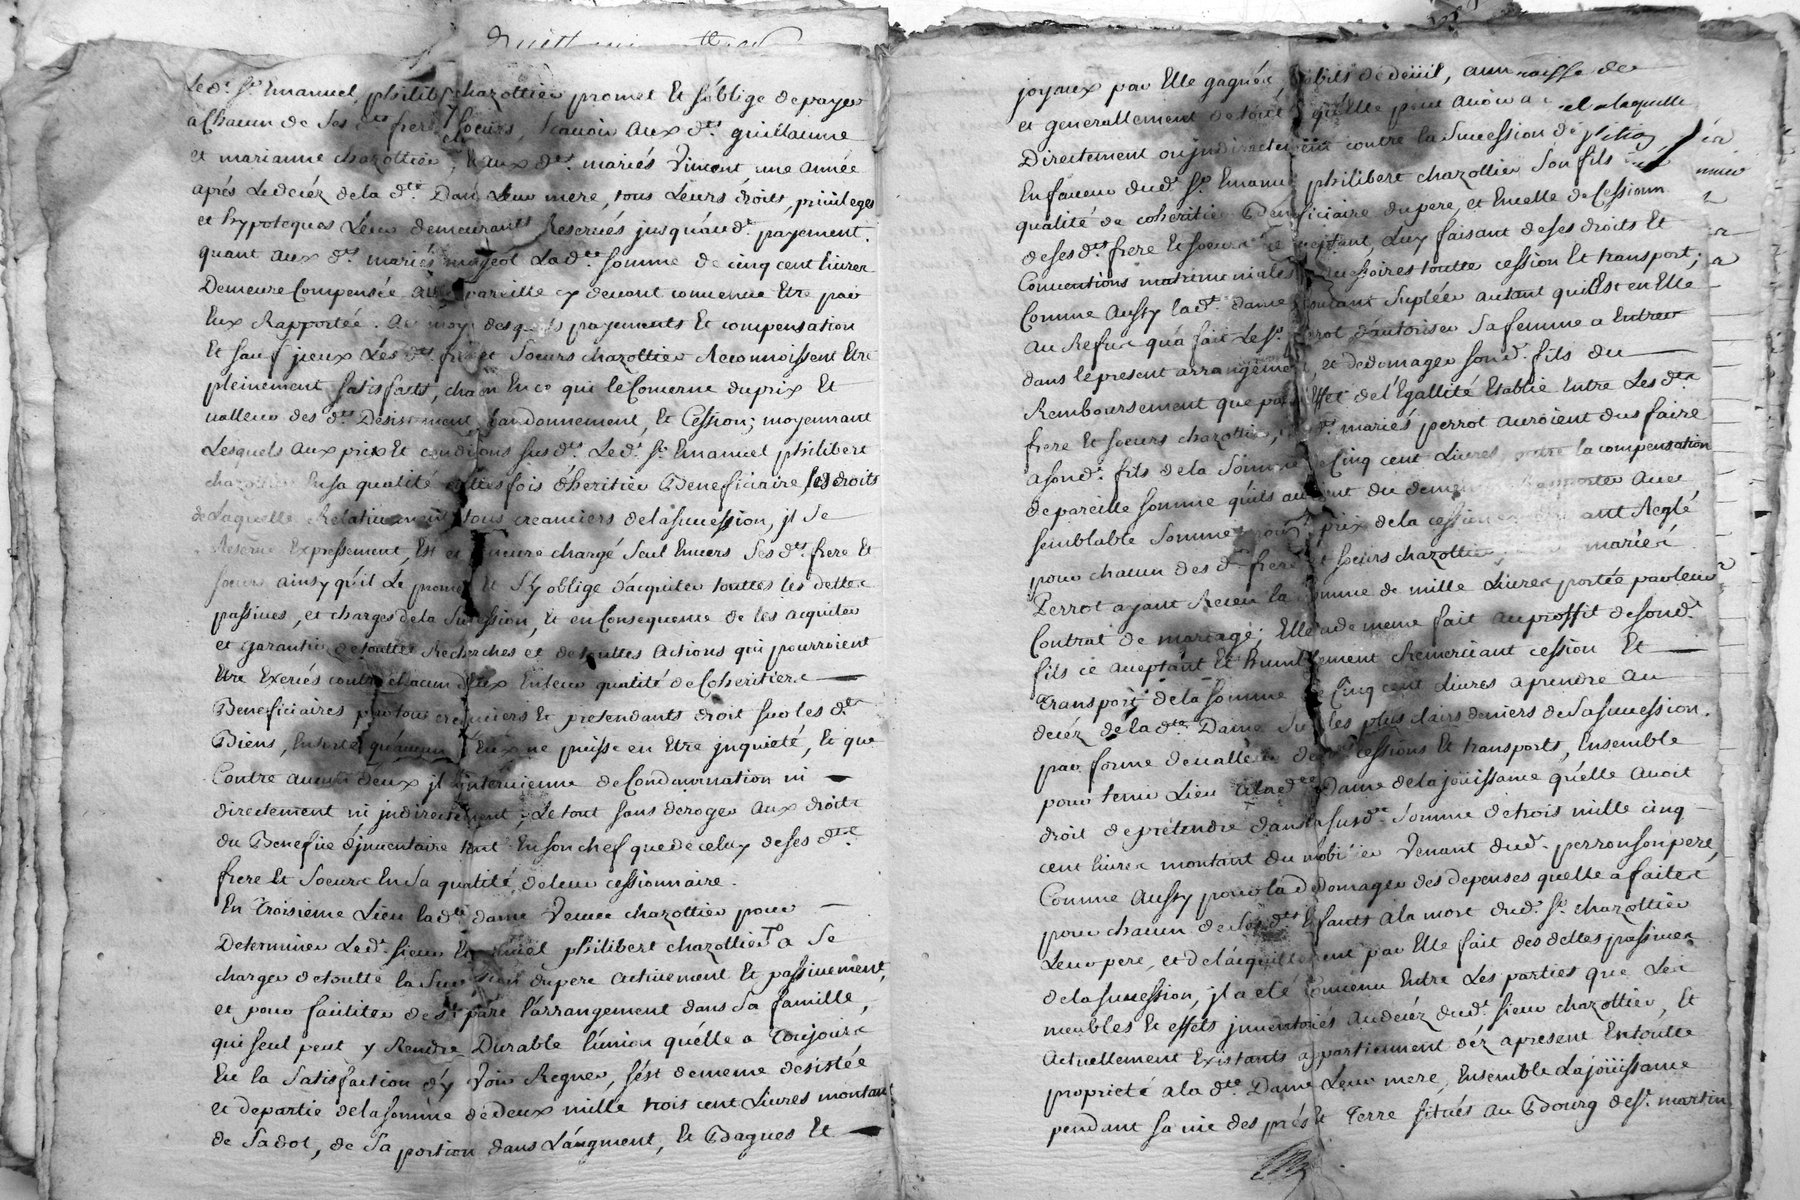 Led.t S.r Emanuel philib chazottier promet Et s'oblige de payer
a Chacun de Ses d.ts frere Et soeurs, Scavoir aux d.ts guillaume
et marianne chazottier, Et aux d.ts mariés Vincent, une année
aprés Le deciéz de la d.te Dame Leur mere, tous Leurs droits, privileges
et hypoteques Leur demeurants Reservés jusqu'aud.t payement.
quant aux d.ts mariés La d.te somme de cinq cent Livres
Demeure Compensée pareille y devant convenue Etre par
Eux Rapportée. Au moyen desquels payements Et compensation
Et sauf jceux Lés d.ts frere et Soeurs chazottier Reconnoissent Etre
pleinement satisfaits, chacun En ce qui le Concerne du prix Et
valleur des d.ts Desistement, abandonnement, et Cession; moyennant
Lesquels aux prix Et conditions susd.ts Led.t S.r Emanuel philibert
chazottier En sa qualité touttesfois d'heritier Beneficiaire, les droits
de Laquelle Relativement tous creanciers de la succession, jl Se
Reserve Expressement, Est et demeure chargé Seul Envers Ses d.ts frere Et
soeurs ainsy qu'il Le promet Et S'y oblige d'acquiter touttes les dettes
passives, et charges de la Succession, Et en Consequence de les acquiter
et garantir de touttes Recherches et de touttes actions qui pourroient
Etre Exercés contre chacun d'Eux En leur qualité de Coheritiers
Beneficiaires par tous creanciers Et pretendants droit sur les d.ts
Biens, Ensorte qu'aucun d'Eux ne puisse en Etre jnquieté, Et que
Contre aucun d'eux jl n'intervienne de Condamnation ni
directement ni jndirectement; Le tout sans deroger aux droits
du Benefice d'jnventaire tant En son chef que de celuy de ses d.ts
frere Et Soeurs En Sa qualité, de leur cessionnaire.
En Troisieme Lieu lad.te dame Veuve chazottier pour
Determiner Led.t sieur Emanuel philibert chazottier a Se
charger de toutte la Succession du pere activement Et passivement,
et pour faciliter de sa part l'arrangement dans Sa famille,
qui seul peut y Rendre Durable l'union qu'elle a Toujours
Eu la Satisfaction d'y Voir Regner, s'est de meme desistée
et departie de la somme de deux mille trois cent Livres montant
de Sa dot, de Sa portion dans L'augment, Et Bagues Et
joyaux par Elle gagnés, habits de deüil, année
et generallement de tout qu'elle peut avoir
Directement ou jndirectement contre la Succession de
En faveur dud.t S.r Emanuel philibert chazottier Son fils
qualité de coheritier Beneficiaire du pere, et En celle de Cession
de ses d.ts frere Et Soeurs ce acceptant, Luy faisant de ses droits Et
Conventions matrimoniales accessoires toutte cession Et transport;
Comme aussy lad.te dame voulant Supléer autant qu'il Est en Elle
au Refus qu'a fait Le S.r perrot d'autoriser Sa femme a Entrer
dans le present arrangement et dedomager son d.t fils du
Remboursement que par l'effet de l'Egallité Etablie Entre Les d.ts
frere Et soeurs chazottier, les d.ts mariés perrot auroient dus faire
a son d.t fils de la Somme de Cinq cent Livres outre la compensation
de pareille somme qu'ils auroient du Rapporter avec
semblable Somme pour prix de la cession Reglé
pour chacun des d.ts frere et soeurs chazottier, mariés
Perrot ayant Recu la somme de mille Livres portée par leur
Contrat de mariage; Elle a de meme fait au proffit de son d.t
fils ce acceptant Et humblement Remerciant cession Et
Transport de la Somme de Cinq cent Livres a prendre au
deciéz de la d.te Dame Sur les plus clairs deniers de Sa succession.
par forme de valleur de cessions Et transports, Ensemble
pour tenir Lieu a lad.te Dame de la joüissance qu'elle avoit
droit de prétendre dans la susd.te Somme de trois mille cinq
cent Livres montant du mobilier Venant dud.t perron son pere,
Comme aussy pour la dedomager des depenses qu'elle a faites
pour chacun de Ses d.ts Enfants a la mort dud.t S.r chazottier
Leur pere, et de l'acquittement par Elle fait des dettes passives
de la succession, jl a eté Convenu Entre Les parties que Les
meubles Et effets jnventoriés au deciéz dud.t sieur chazottier, Et
actuellement Existants appartiennent déz apresent En toutte
proprieté a la d.te Dame Leur mere, Ensemble La joüissance
pendant sa vie des prés Et Terre situés au Bourg de S.t martin